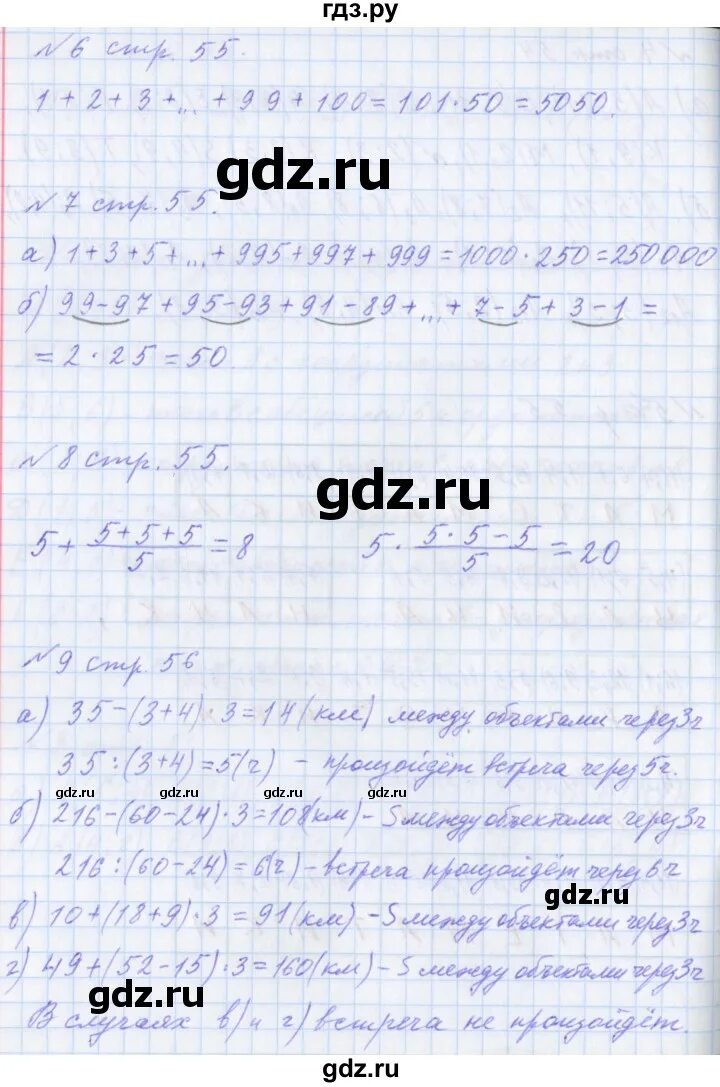 гдз.ру
№6 стр. 55.
1 + 2 + 3 + ... + 99 + 100 = 101 · 50 = 5050.
gdz.ru
№7 стр. 55.
а) 1 + 3 + 5 + ... + 995 + 997 + 999 = 1000 · 250 = 250000
б) 99 - 97 + 95 - 93 + 91 - 89 + ... + 7 - 5 + 3 - 1 =
= 2 · 25 = 50.
№8 стр. 55.
gdz.ru
5 + (5 + 5 + 5)/5 = 8 5 · (5 · 5 - 5)/5 = 20
№9 стр. 56
а) 35 - (3 + 4) · 3 = 14 (км) между объектами через 3ч
35 : (3 + 4) = 5 (ч) - произойдёт встреча через 5ч.
gdz.ru gdz.ru gdz.ru
б) 216 - (60 - 24) · 3 = 108 (км) - S между объектами через 3ч
216 : (60 - 24) = 6 (ч) - встреча произойдёт через 6ч
gdz.ru
в) 10 + (18 + 9) · 3 = 91 (км) - S между объектами через 3ч
г) 49 + (52 - 15) · 3 = 160 (км) - S между объектами через 3ч
gdz.ru
В случаях в) и г) встреча не произойдёт.
gdz.ru